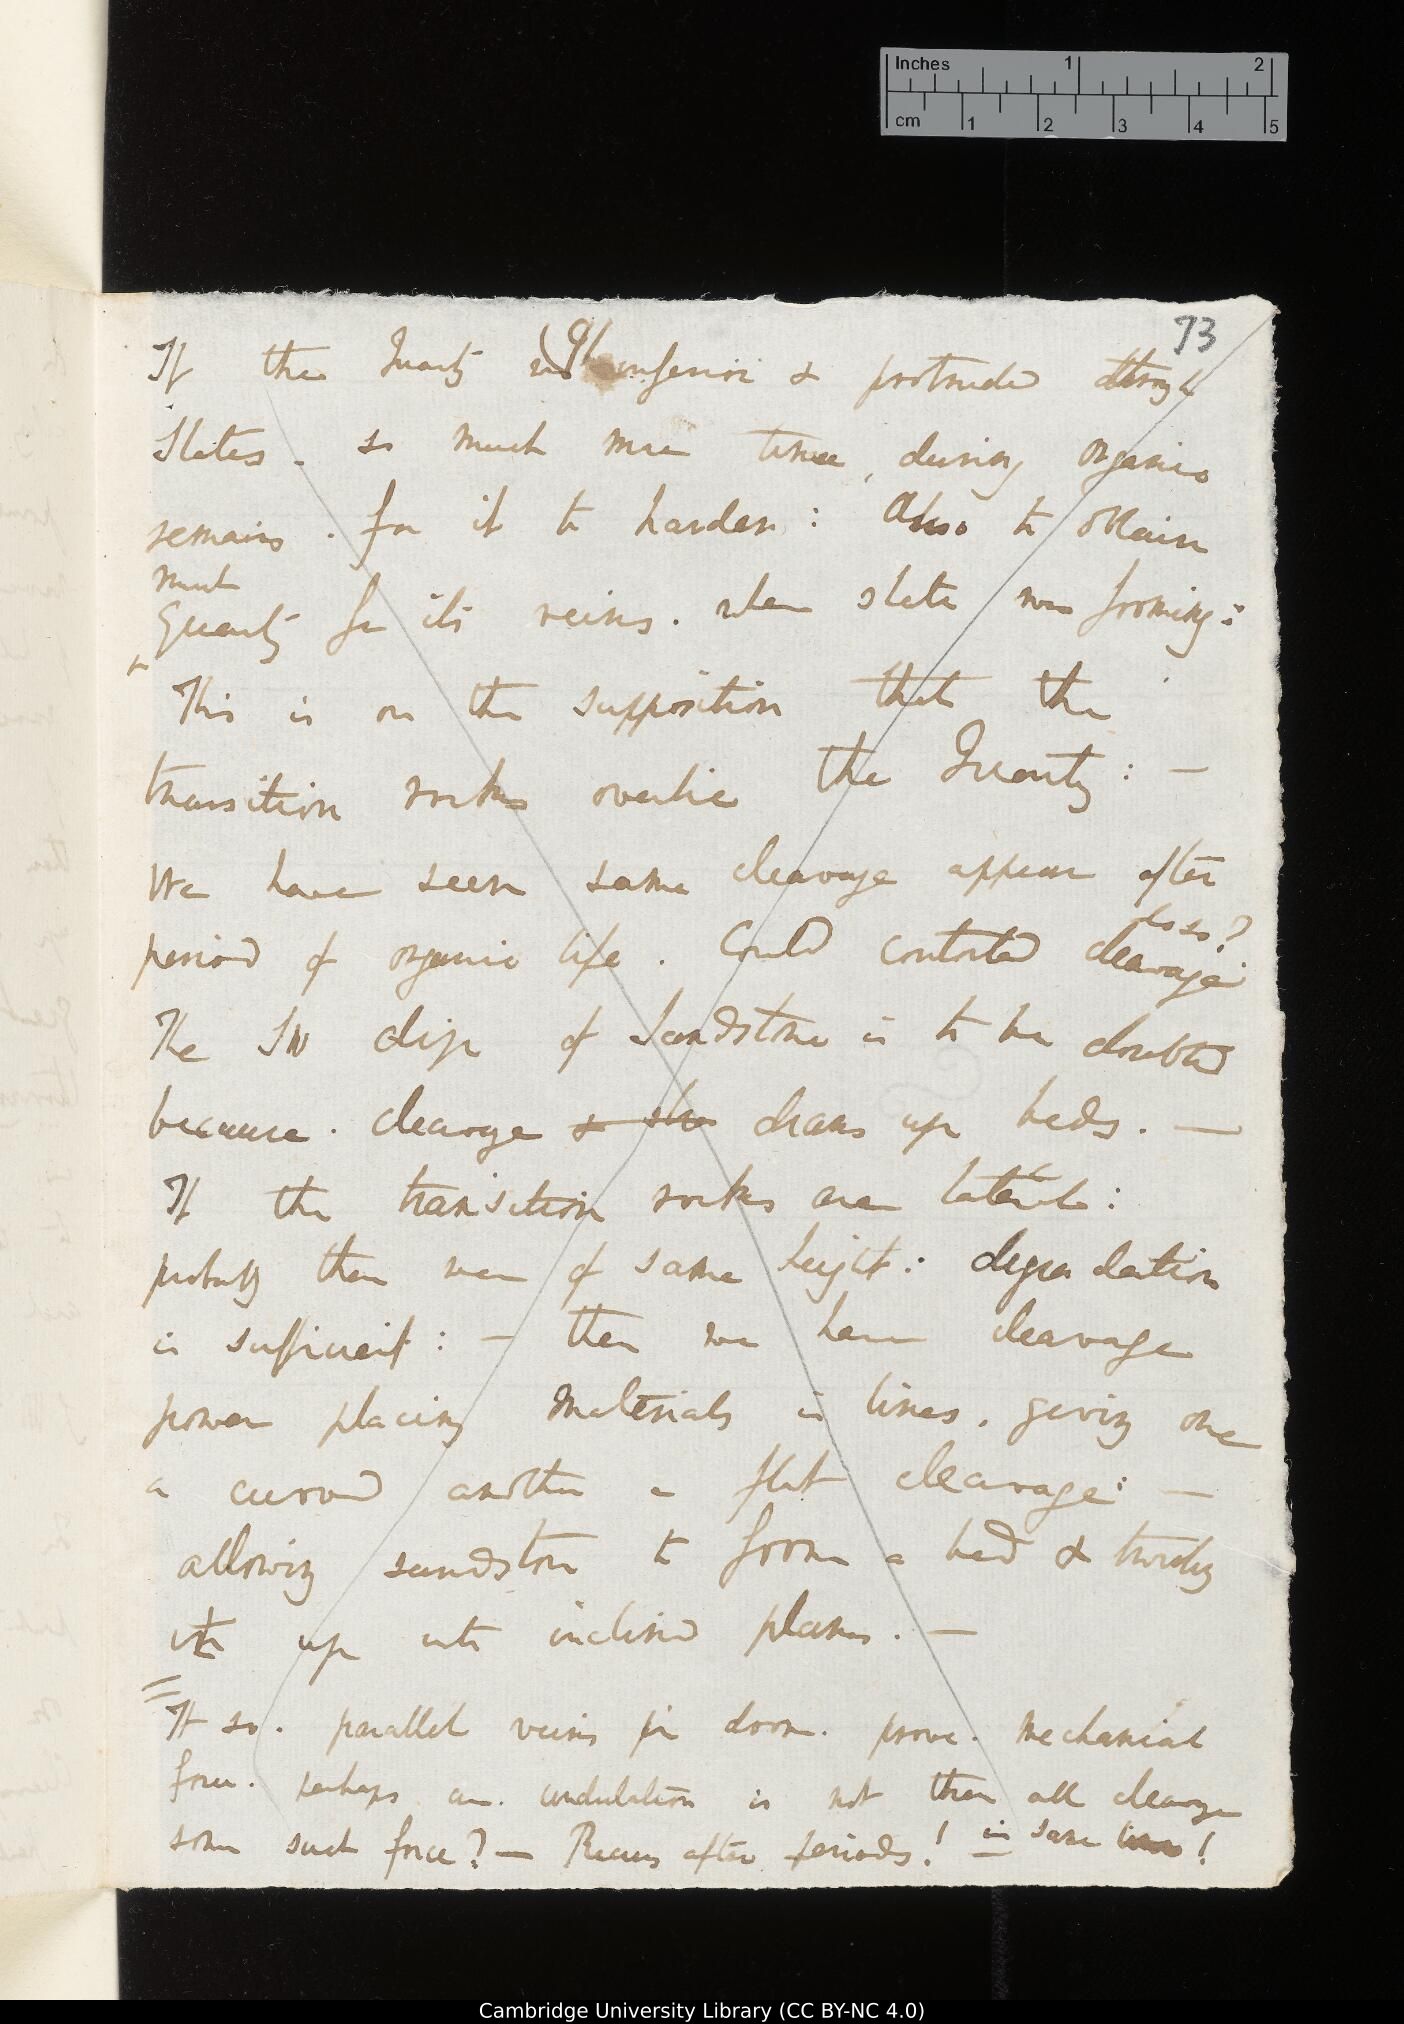 Inches 1 2
cm 1 2 3 4 5
73
If the Quartz inferior & protruded through
Slates. so much more time, during organic
remains. for it to harden: Also to obtain
much
Quartz for its veins. when slate was forming:
This is on the supposition that the
transition rocks overlie the Quartz: —
We have seen same cleavage appear after
do so?
period of organic life. Could contorted cleavage
The SW dip of Sandstone is to be doubted
because. cleavage & sla draws up beds. —
If the transition rocks are lateral:
probably then were of same height: degradation
is sufficient: — then we have cleavage
power placing materials in lines. giving one
a curved another a flat cleavage: —
allowing sandstone to form a bed & twisting
it up into inclined planes. —
If so. parallel veins in doom. prove. mechanical
force. perhaps an. undulation is not then all cleavage
some such force? — Recurs after periods! in same lines!
Cambridge University Library (CC BY-NC 4.0)